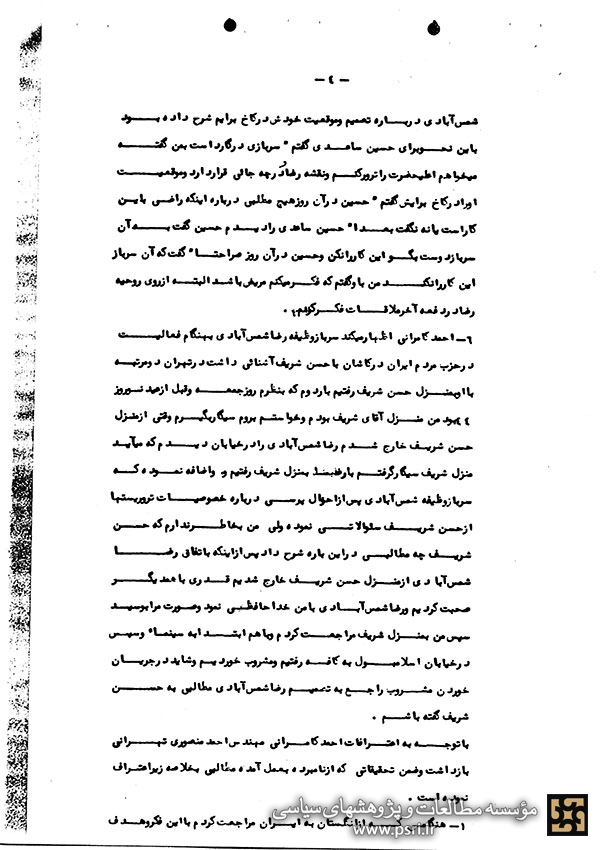 — ٤ —
شمس‌آبادی درباره تصمیم وموقعیت خودش درکاخ برایم شرح داده بـــود
باین نحوبرای حسین ساعدی گفتم " سربازی درگارداست بمن گفتـــه
میخواهم اعلیحضرت را ترورکنم ونقشه رضا درچه جائی قراردارد وموقعیـت
اورادرکاخ برایش گفتم " حسین درآن روزهیچ مطلبی درباره اینکه راضی باین
کاراست یا نه نگفت بعدا" حسین ساعدی را دیدم حسین گفت بـــه آن
سربازدوست بگو این کاررانکن وحسین درآن روز صراحتا" گفت که آن سرباز
این کاررانکند من باوگفتم که فکرمیکنم مریض باشد البته ازروی روحیه
رضا در دفعه آخرملاقات فکرکردم.
٦- احمد کامرانی اظهارمیکند سربازوظیفه رضاشمس‌آبادی بهنگام فعالیـت
درحزب مردم ایران درکاشان باحسن شریف آشنائی داشت درتهران دومرتبه
با اوبمنزل حسن شریف رفتیم باردوم که بنظرم روزجمعـــه وقبل ازعید نـوروز
٤٤ بود من منـزل آقای شریف بودم وخواستم بروم سیگاربگیـرم وقتی ازمنزل
حسن شـریف خارج شدم رضا شمس‌آبادی را درخیابان دیـدم که میآید
منزل شریف سیگارگرفتـم بمنزل شریف رفتیم و واضافه نمـوده کـه
سربازوظیفه شمس‌آبادی پس ازاحوال پرسی درباره خصوصیـات تروریستها
ازحسن شریـف سئوالاتـی نموده ولی من بخاطرندارم که حسـن
شریف چه مطالبـی دراین باره شرح داد پس ازاینکه باتفاق رضـا
شمس‌آبادی ازمنـزل حسن شریـف خارج شدیم قدری باهمدیگـر
صحبت کردیم ورضاشمس‌آبـادی بامن خداحافظـی نمود وصورت مرا بوسید
سپس من بمنزل شریف مراجعت کردم وباهم ابتـدا به سینما" وسپس
درخیابان اسلامبول به کافه رفتیم ومشروب خوردیـم وشاید درجریـان
خوردن مشـروب راجع به تصمیـم رضاشمس‌آبادی مطالبی به حسـن
شریف گفته باشـم .
باتوجه به اعترافات احمدکامرانـی مهندس احمد منصوری تهرانـی
بازداشت وضمن تحقیقاتی که ازنامبرده بعمل آمده مطالبی بخلاصه زیراعتراف
نموده است .
١- هنگامیکـه ازانگلستان به ایـران مراجعت کردم با این فکروهـدف
مؤسسه مطالعات و پژوهشهای سیاسی
www.psri.ir